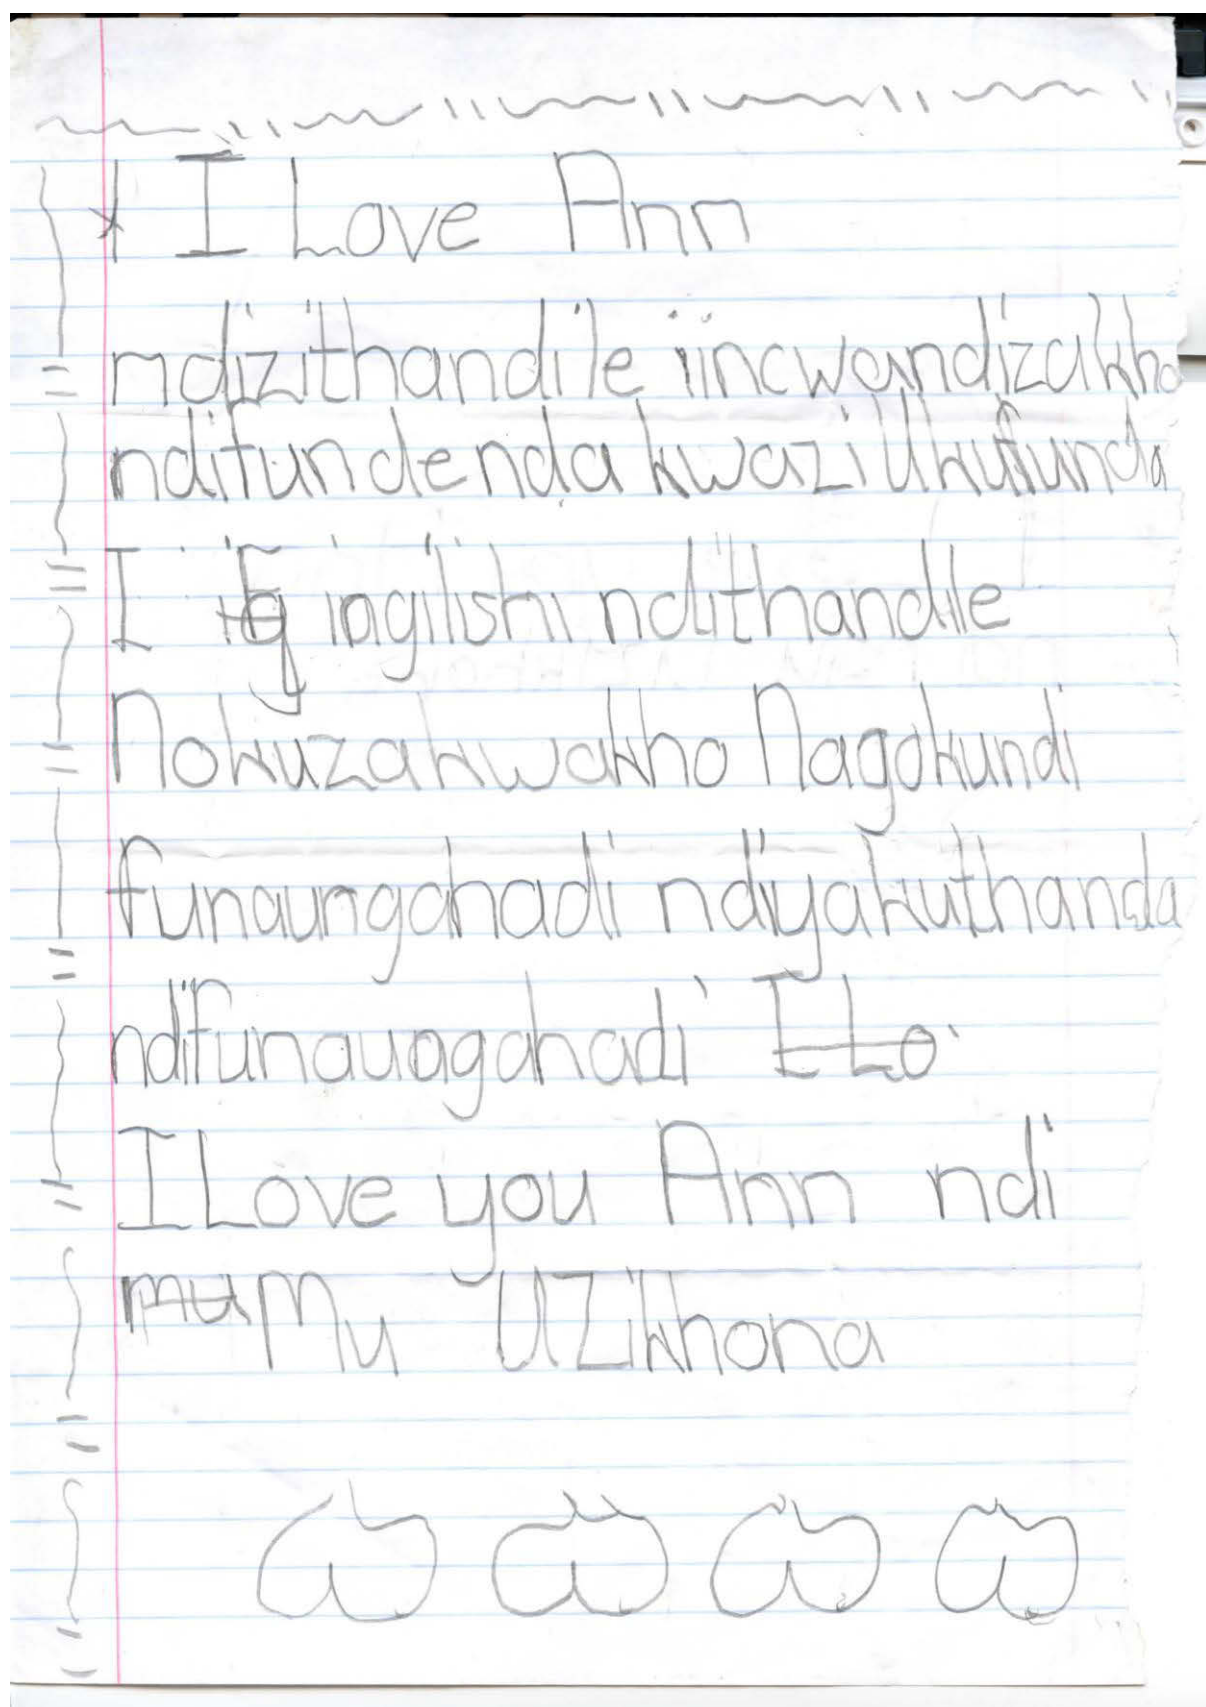 I Love Ann
ndizithandile iincwandizakho
ndifundenda kwazi Ukufunda
I ingilishi ndithandile
Nokuzakwakho Nagokundi
funaungahadi ndiyakuthanda
ndifunauagahadi I Lo
I Love you Ann ndi
mu Mu UZikhona